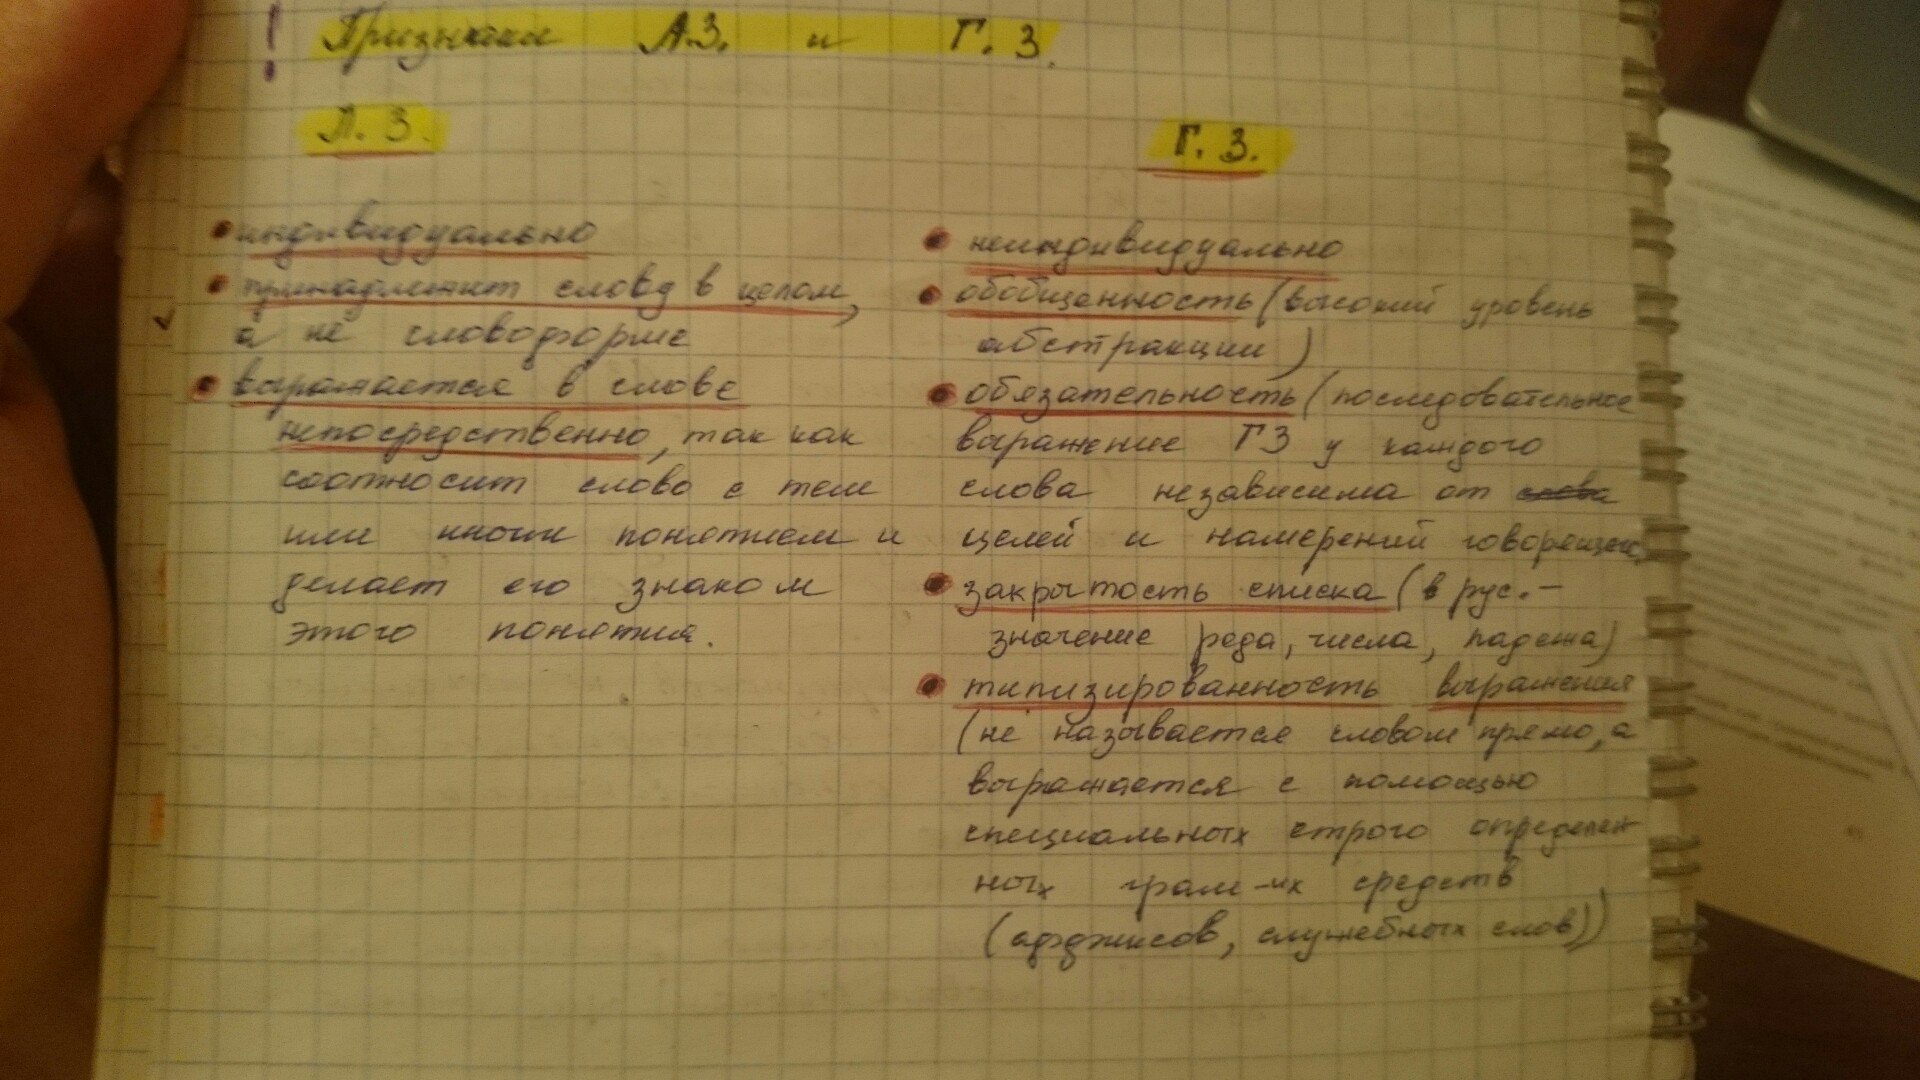 ! Признаки Л.З. и Г.З.
Л. З.
• индивидуально
• принадлежит слову в целом,
а не словоформе
• выражается в слове
непосредственно, так как
соотносит слово с тем
или иным понятием и
делает его знаком
этого понятия.
Г. З.
• неиндивидуально
• обобщенность (высокий уровень
абстракции)
• обязательность (последовательное
выражение ГЗ у каждого
слова независимо от
целей и намерений говорящего
• закрытость списка (в рус. –
значение рода, числа, падежа)
• типизированность выражения
(не называется словом прямо, а
выражается с помощью
специальных строго определен-
ных грам-их средств
(аффиксов, служебных слов))